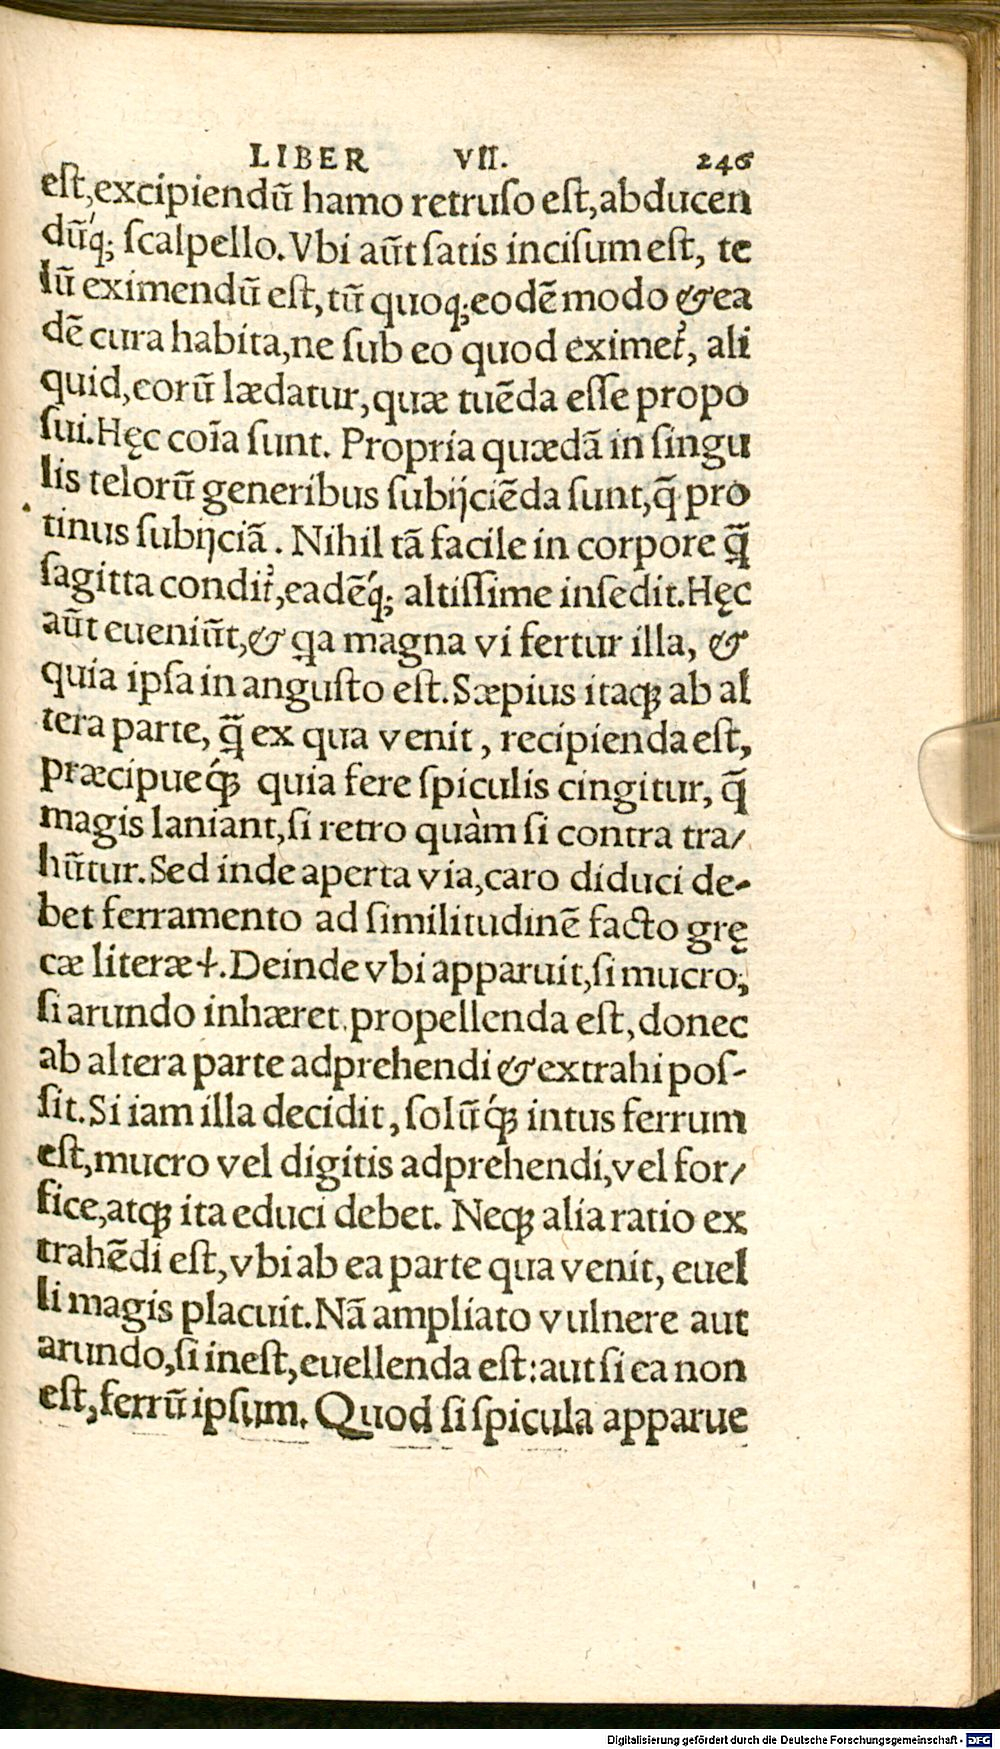 LIBER VII. 246
eſt, excipiendū hamo retruſo eſt, abducen
dūq́; ſcalpello. Vbi aūt ſatis inciſum eſt, te
lū eximendū eſt, tū quoq; eodē modo & ea
dē cura habita, ne ſub eo quod eximet̉, ali
quid, eorū lædatur, quæ tuēda eſſe propo
ſui. Hęc coīa ſunt. Propria quædā in ſingu
lis telorū generibus ſubijciēda ſunt, q̄ pro
tinus ſubijciā. Nihil tā facile in corpore q̄̃
ſagitta condit̉, eadēq́; altiſſime inſedit. Hęc
aūt eueniūt, & qa magna vi fertur illa, &
quia ipſa in anguſto eſt. Sæpius itaq; ab al
tera parte, q̄̃ ex qua venit, recipienda eſt,
præcipueq́; quia fere ſpiculis cingitur, q̄
magis laniant, ſi retro quàm ſi contra tra/
hūtur. Sed inde aperta via, caro diduci de-
bet ferramento ad ſimilitudinē facto grę
cæ literæ ⍭. Deinde vbi apparuit, ſi mucro,
ſi arundo inhæret, propellenda eſt, donec
ab altera parte adprehendi & extrahi poſ-
ſit. Si iam illa decidit, ſolūq́; intus ferrum
eſt, mucro vel digitis adprehendi, vel for/
fice, atq; ita educi debet. Neq; alia ratio ex
trahēdi eſt, vbi ab ea parte qua venit, euel
li magis placuit. Nā ampliato vulnere aut
arundo, ſi ineſt, euellenda eſt: aut ſi ea non
eſt, ferrū ipſum. Quod ſi ſpicula apparue
Digitalisierung gefördert durch die Deutsche Forschungsgemeinschaft - DFG